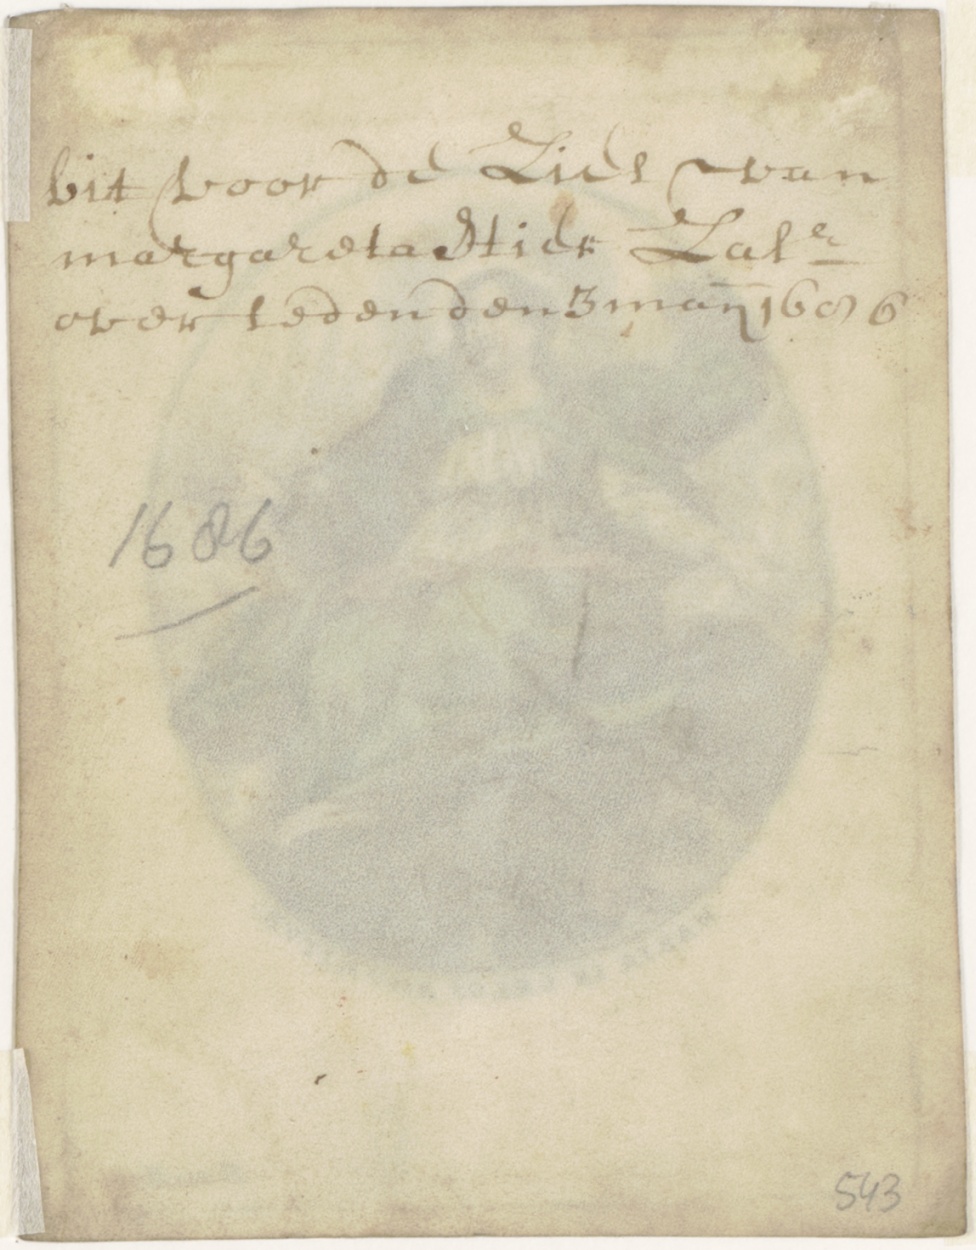 bit voor de Ziel van
margareta Stier Zalr
over leden den 3 maij 1686
1686
543